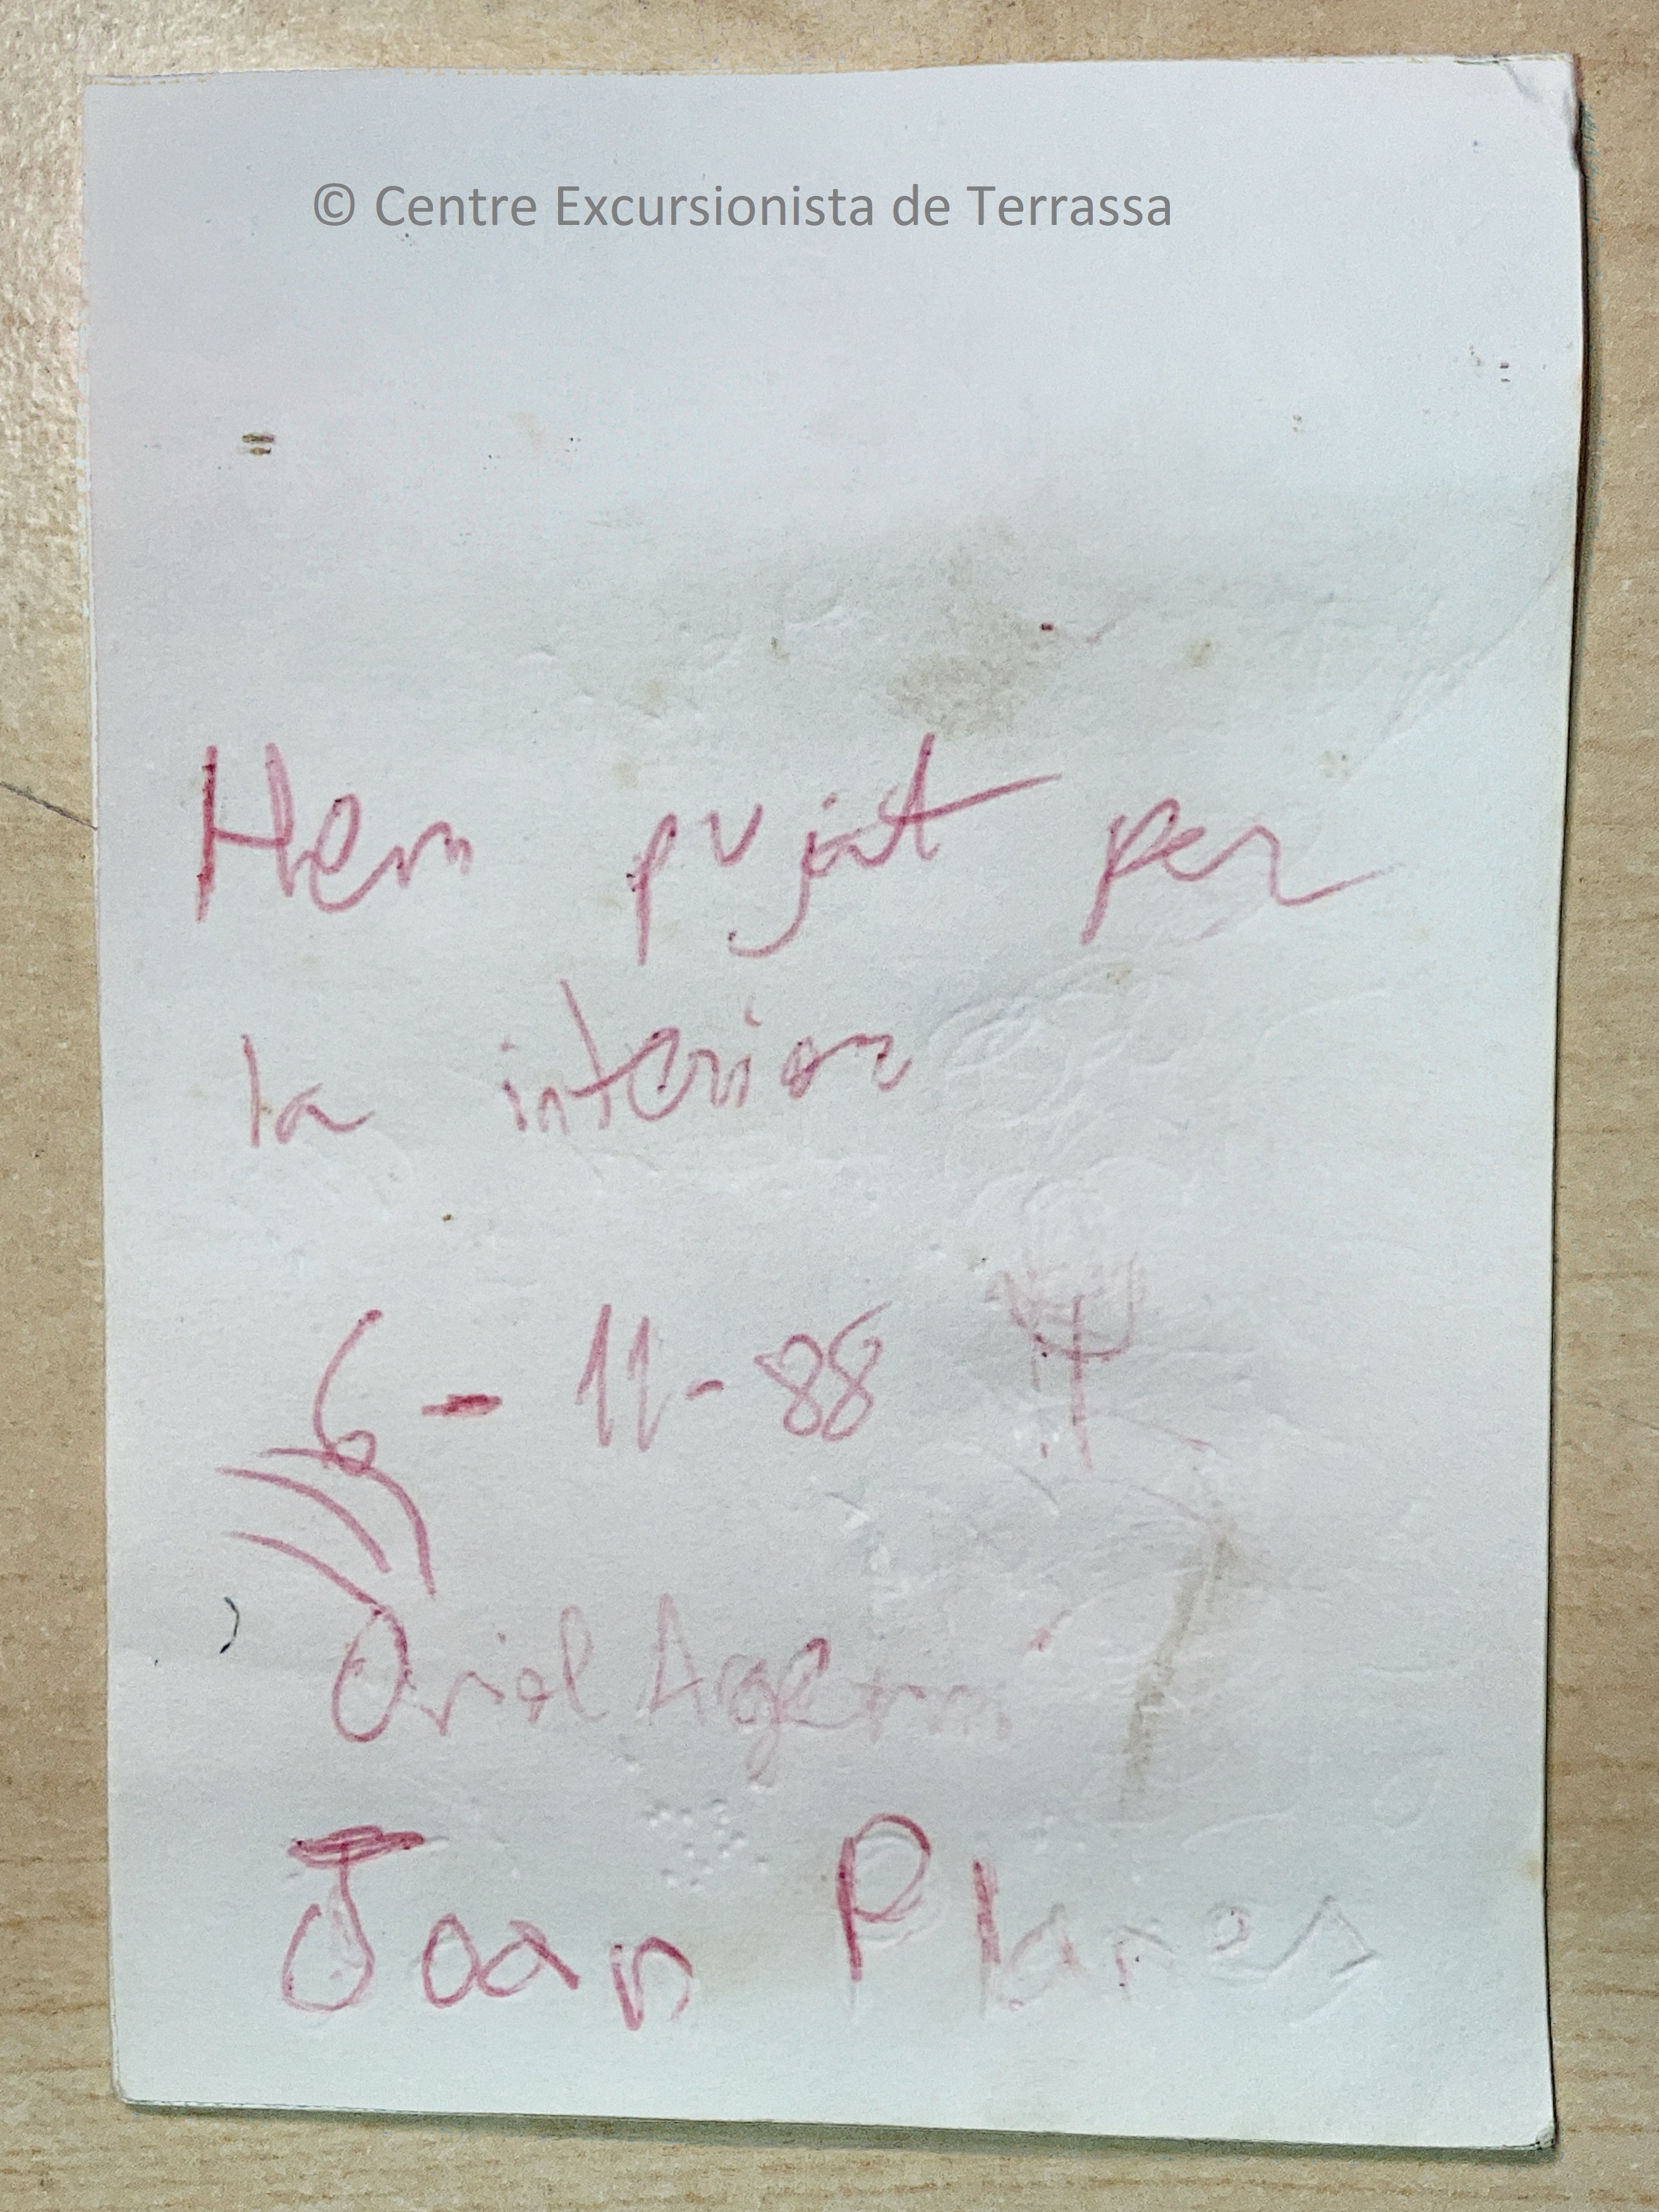 © Centre Excursionista de Terrassa
Hem pujat per
la interior
6-11-88
Oriol
Joan Planes